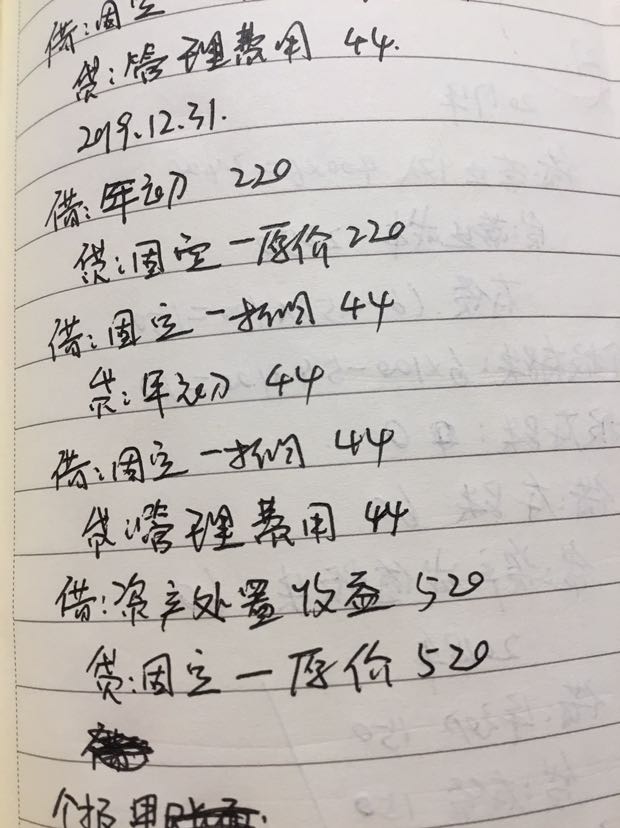 借:固定
贷:管理费用 44.
2019.12.31.
借:年初 220
贷:固定一原价 220
借:固定一折旧 44
贷:年初 44
借:固定一折旧 44
贷:管理费用 44
借:资产处置收益 520
贷:固定一原价 520
个报用